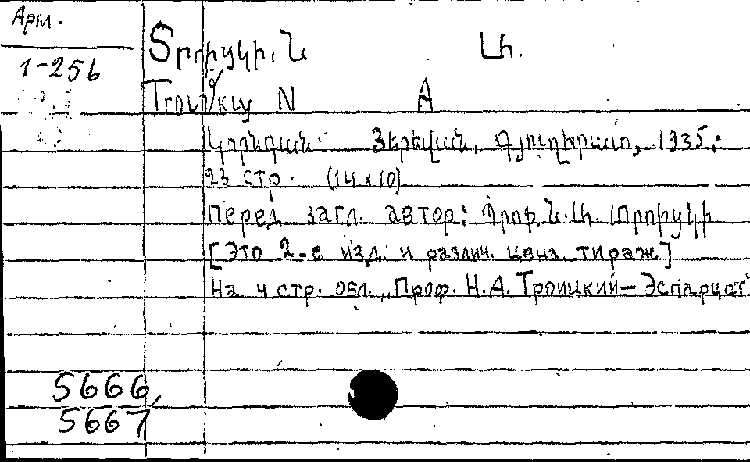 Арм.
1-256
Տրոիցկի. Ն Ա.
Troickiy N A
Կորնգան Յերեվան, Գյուղհրատ, 1935.
23 стр. (14x10)
Перед загл. автор: Պրոֆ. Ն. Ա. Տրոիցկի
[Это 2-е изд. и различ. цена. тираж]
На 4 стр. обл. „Проф. Н.А. Троицкий — Эспарцет"
5666,
5667